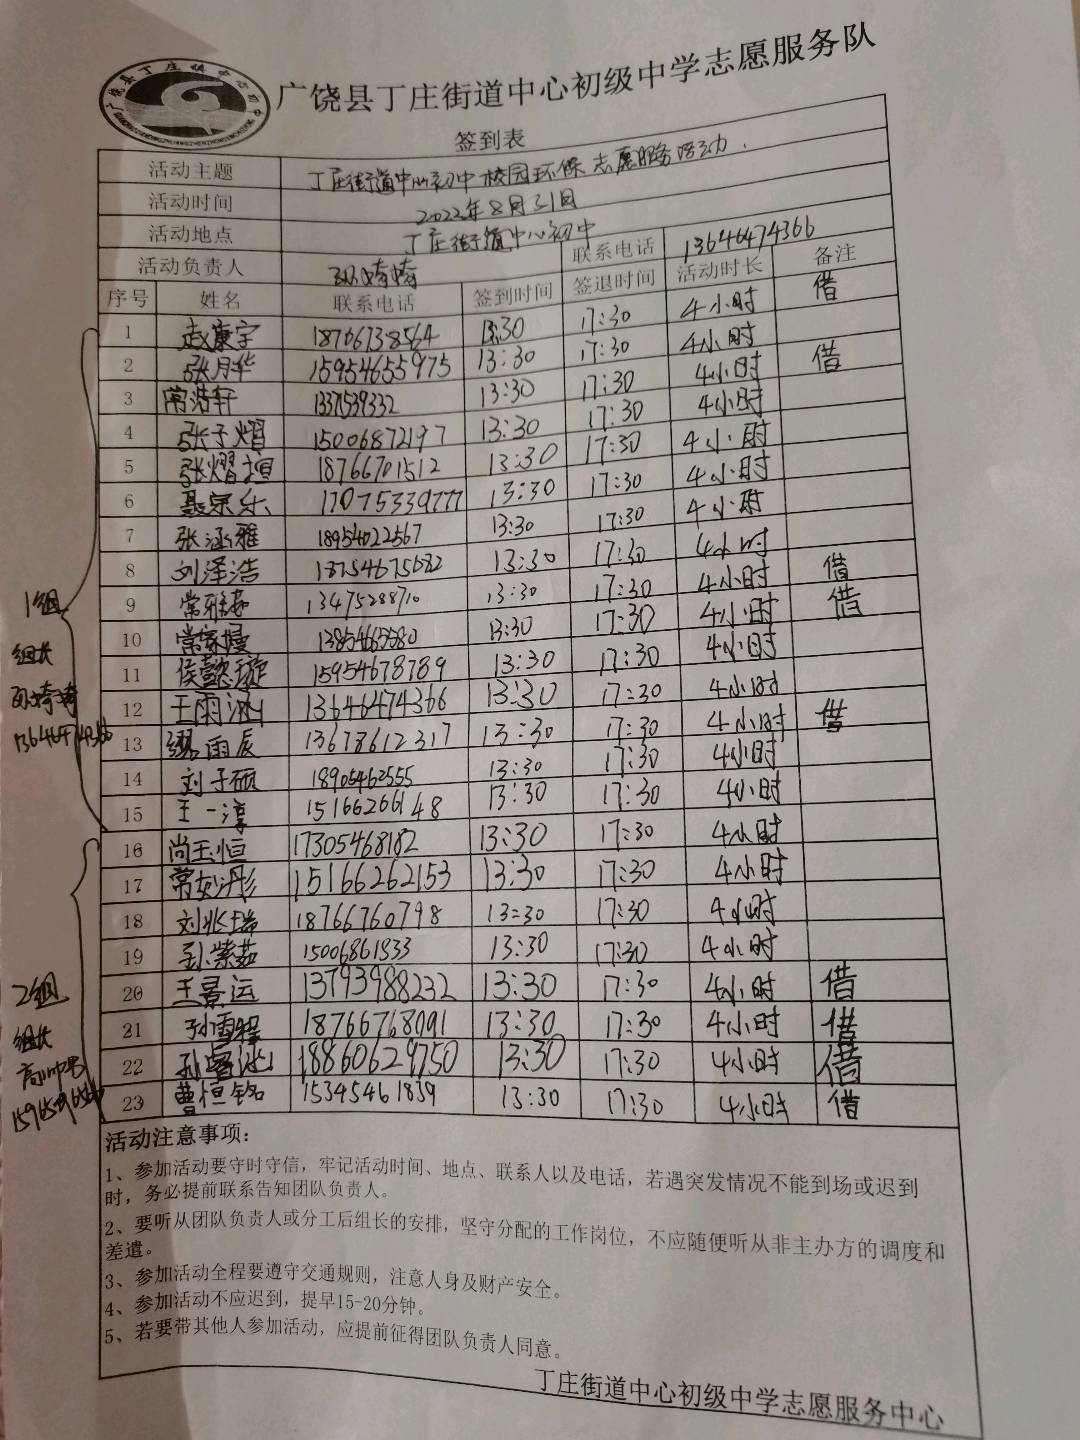 广饶县丁庄街道中心初级中学志愿服务队
签到表
活动主题 丁庄街道中心初中校园环保志愿服务活动.
活动时间 2022年8月31日
活动地点 丁庄街道中心初中
活动负责人 孙婷婷 联系电话 13646474366
序号 姓名 联系电话 签到时间 签退时间 活动时长 备注
1 赵康宇 18706738564 13:30 17:30 4小时 借
2 张月华 15954655975 13:30 17:30 4小时
3 常浩轩 1337539332 13:30 17:30 4小时 借
4 张子熠 15006872197 13:30 17:30 4小时
5 张熠垣 18766701512 13:30 17:30 4小时
6 聂宗乐 17075339777 13:30 17:30 4小时
7 张涵雅 18954022567 13:30 17:30 4小时
8 刘泽浩 18754675682 13:30 17:30 4小时
9 常雅 13475288710 13:30 17:30 4小时 借
10 常 13854665580 13:30 17:30 4小时 借
11 侯懿璇 15954678789 13:30 17:30 4小时
12 王雨 13646474366 13:30 17:30 4小时
13 雨辰 13678612317 13:30 17:30 4小时 借
14 刘子硕 18905462555 13:30 17:30 4小时
15 王一淳 15166266148 13:30 17:30 4小时
16 尚玉恒 17305468182 13:30 17:30 4小时
17 常妙彤 15166262153 13:30 17:30 4小时
18 刘兆瑞 18766760798 13:30 17:30 4小时
19 孙紫茹 15006861833 13:30 17:30 4小时
20 王景运 13793988232 13:30 17:30 4小时 借
21 孙雪程 18766768091 13:30 17:30 4小时 借
22 孙睿 18860629750 13:30 17:30 4小时 借
23 曹恒铭 15345461839 13:30 17:30 4小时 借
1组
组长
孙婷婷
13646474366
2组
组长
活动注意事项:
1、参加活动要守时守信，牢记活动时间、地点、联系人以及电话，若遇突发情况不能到场或迟到
时，务必提前联系告知团队负责人。
2、要听从团队负责人或分工后组长的安排，坚守分配的工作岗位，不应随便听从非主办方的调度和
差遣。
3、参加活动全程要遵守交通规则，注意人身及财产安全。
4、参加活动不应迟到，提早15-20分钟。
5、若要带其他人参加活动，应提前征得团队负责人同意。
丁庄街道中心初级中学志愿服务中心